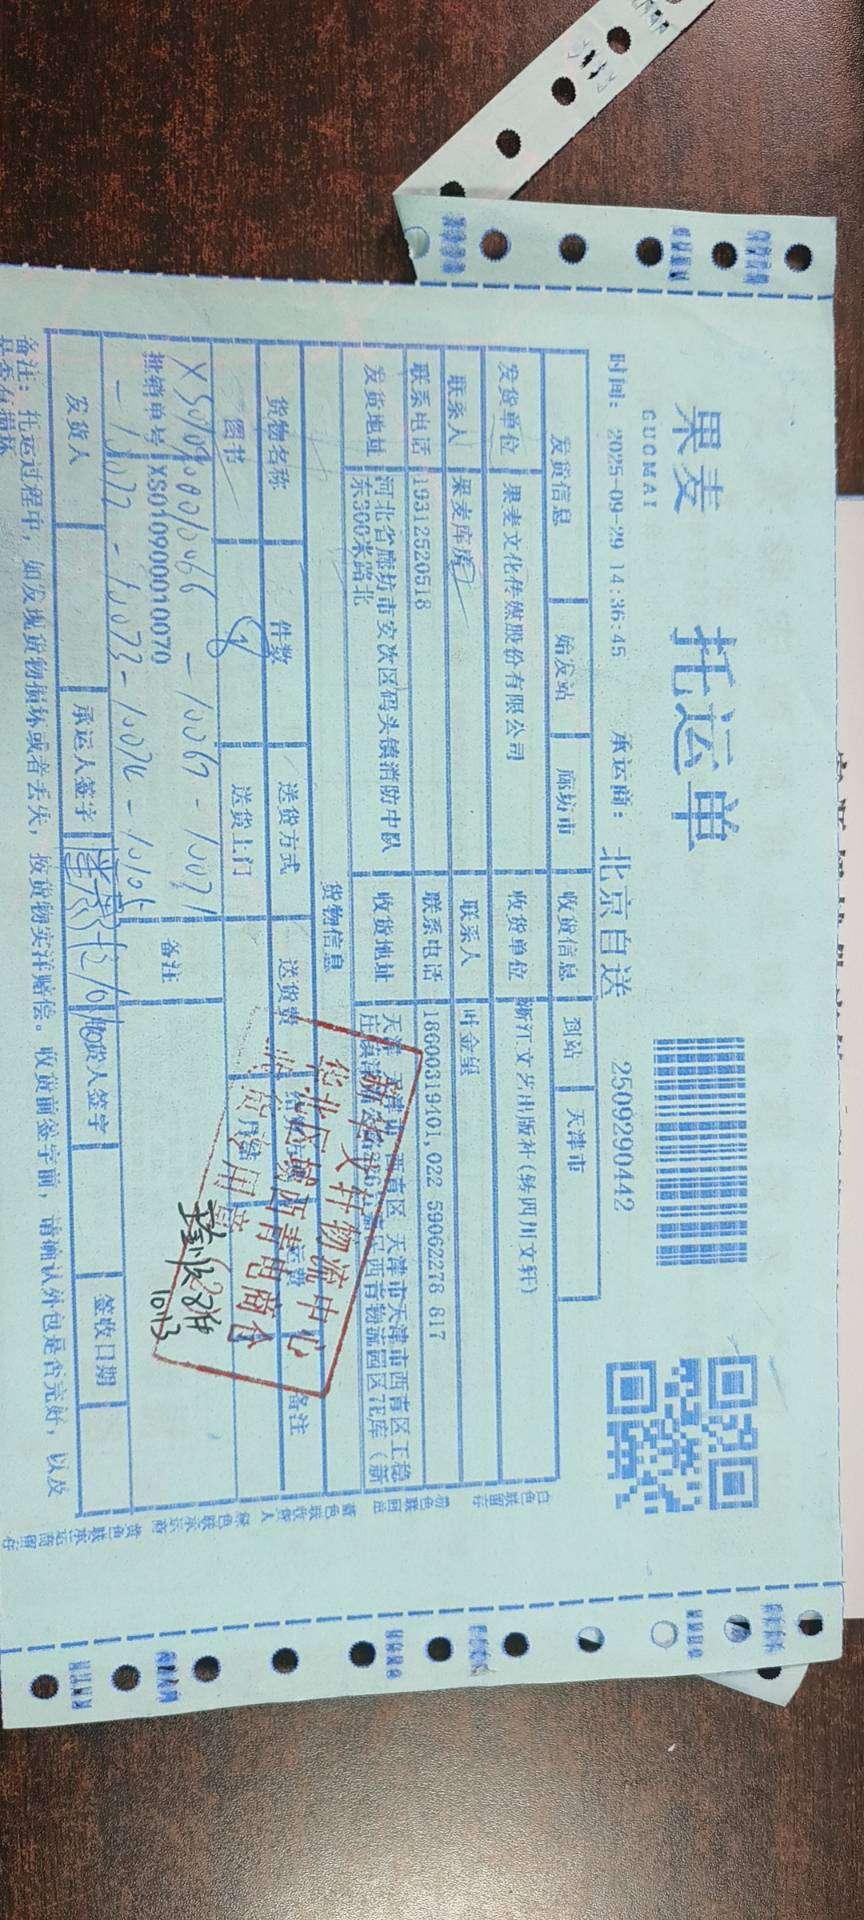 果麦 托运单
GUOMAI
时间: 2025-09-29 14:36:45 承运商: 北京自送 2509290442
发货信息 始发站 廊坊市 收货信息 到站 天津市
发货单位 果麦文化传媒股份有限公司 收货单位 浙江文艺出版社(转四川文轩)
联系人 果麦库房 联系人 叶金组
联系电话 19312520518 联系电话 18600319401,022 59062278 817
发货地址 河北省廊坊市安次区码头镇消防中队 收货地址 天津 天津市 西青区 天津市天津市西青区王稳
东300米路北 庄镇 西青物流园区7E库（新
货物信息
货物名称 件数 送货方式 送货费 运费 备注
图书 8 送货上门 月结
推销单号 XS0109000010070 备注
XS0109000010066 - 10067 - 10071
- 10072 - 10073 - 10074 - 10105
发货人 承运人签字 收货人签字 签收日期
备注: 托运过程中, 如发现货物损坏或者丢失, 按货物实洋赔偿。收货前签字前, 请确认外包是否完好, 以及
是否有损坏
新华文轩物流中心
华北区域西青电商仓
收货专用章
实收8件
10.13
白色联留存
粉色联回送
蓝色联收货人
绿色联承运商
黄色联承运商留存